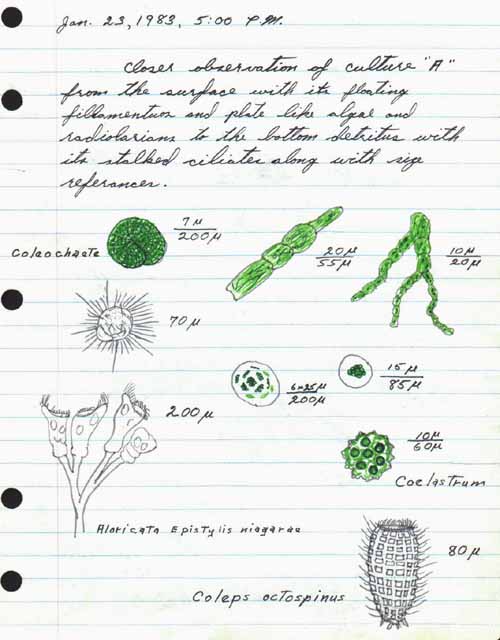 Jan. 23, 1983, 5:00 P.M.
Closer observation of culture "A"
from the surface with its floating
fillamentus and plate like algae and
radiolarians to the bottom detritus with
its stalked ciliates along with size
referances.
Coleochaete
7 µ
200 µ
20 µ
55 µ
10 µ
20 µ
70 µ
6×25 µ
200 µ
15 µ
85 µ
200 µ
10 µ
60 µ
Coelastrum
Aloricata Epistylis niagarae
80 µ
Coleps octospinus